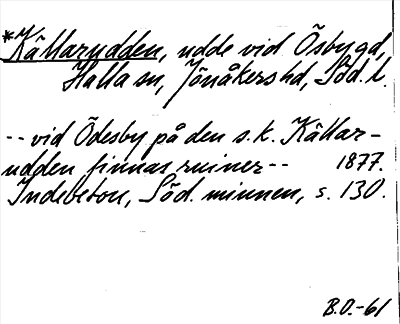 *Källarudden, udde vid Ösby gd,
Halla sn, Jönåkers hd, Söd. l.
-- vid Ödesby på den s.k. Källar-
udden finnas ruiner -- 1877.
Indebetou, Söd. minnen, s. 130.
B.O.-61